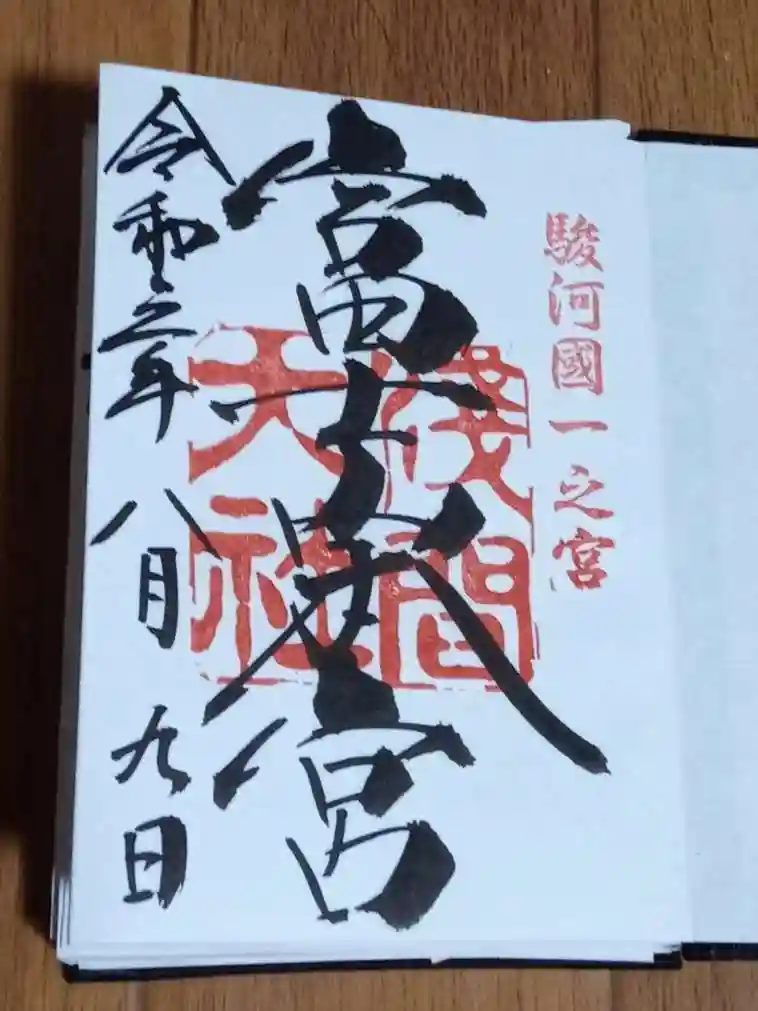 駿河國一之宮
富士山本宮
淺間
大社
令和元年八月九日